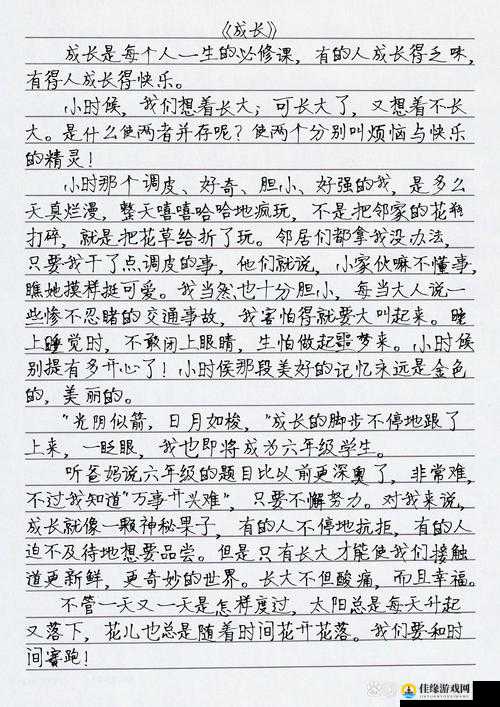 《成长》
成长是每个人一生的必修课，有的人成长得乏味，
有得人成长得快乐。
小时候，我们想着长大；可长大了，又想着不长
大。是什么使两者并存呢？使两个分别叫烦恼与快乐
的精灵！
小时那个调皮、好奇、胆小、好强的我，是多么
天真烂漫，整天嘻嘻哈哈地疯玩，不是把邻家的花瓶
打碎，就是把花草给折了玩。邻居们都拿我没办法，
只要我干了点调皮的事，他们就说，小家伙嘛不懂事，
瞧她摸样挺可爱。我当然也十分胆小，每当大人说一
些惨不忍睹的交通事故，我害怕得就要大叫起来。晚
上睡觉时，不敢闭上眼睛，生怕做起噩梦来。小时候
别提有多开心了！小时侯那段美好的记忆永远是金色
的，美丽的。
"光阴似箭，日月如梭，"成长的脚步不停地跟了
上来，一眨眼，我也即将成为六年级学生。
听爸妈说六年级的题目比以前更深奥了，非常难，
不过我知道"万事开头难"，只要不懈努力。对我来说，
成长就像一颗神秘果子，有的人不停地抗拒，有的人
迫不及待地想要品尝。但是只有长大才能使我们接触
道更新鲜，更奇妙的世界。长大不但酸痛，而且幸福。
不管一天又一天是怎样度过，太阳总是每天升起
又落下，花儿也总是随着时间花开花落。我们要和时
间赛跑！
佳缘游戏网